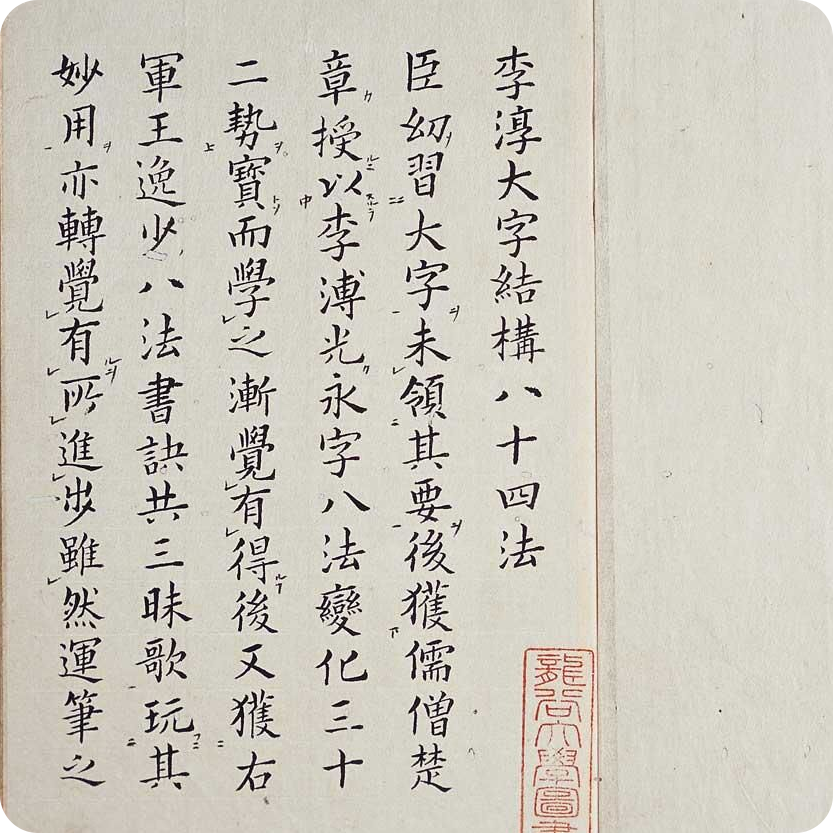 李淳大字結構八十四法
臣㓜習大字未領其要後獲儒僧楚
章授以李溥光永字八法變化三十
二勢寶而學之漸覺有得後又獲右
軍王逸少八法書訣共三昧歌玩其
妙用亦轉覺有所進步雖然運筆之
龍谷大學圖書